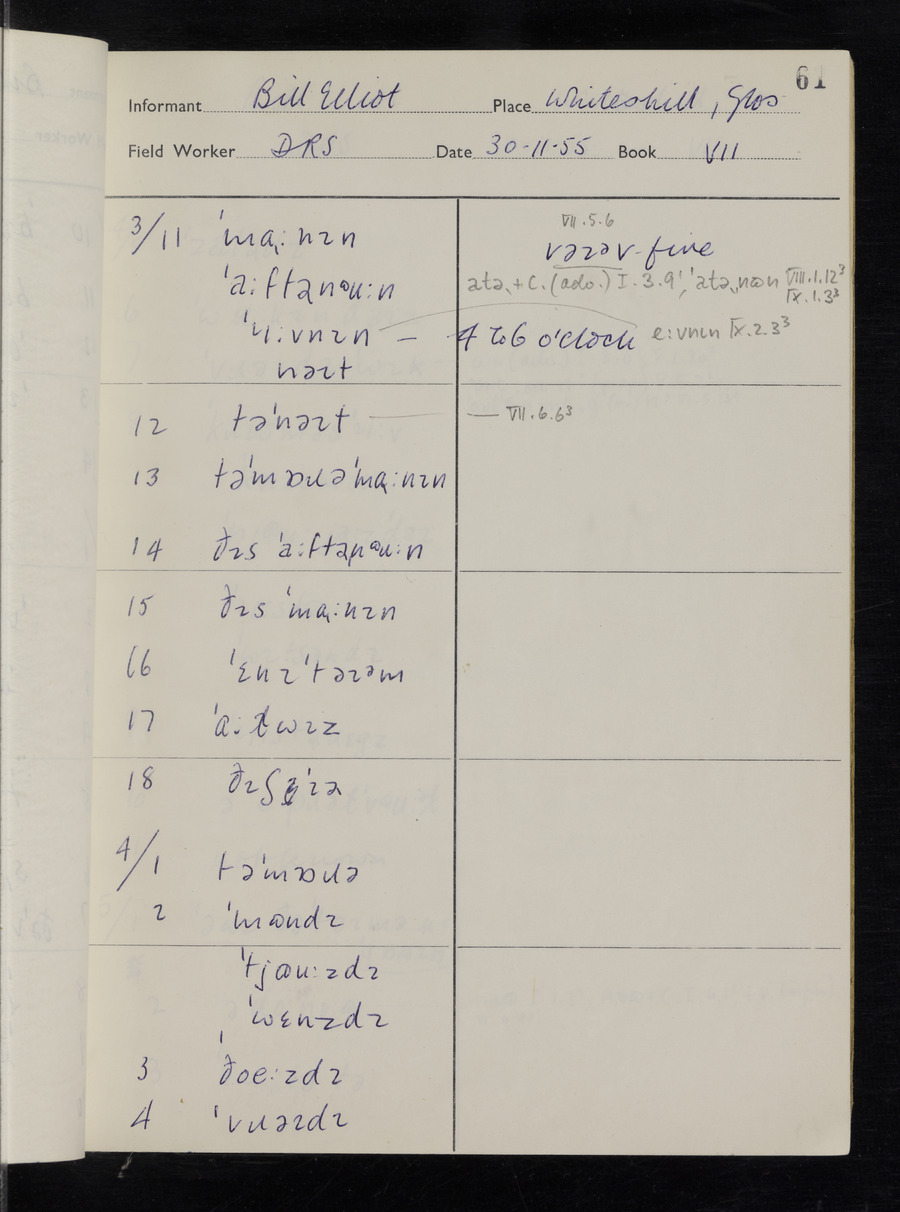 61
Informant Bill Elliot Place Whiteshill, Glos
Field Worker DRS Date 30-11-55 Book VII
3/11 ˈmɑ˞:nɪn
VII.5.6
vəɪəv-five
ˈa:ftəɲəu:n
I.3.9
VIII.1.12³
IX.1.3³
ˈi:vnɪn – 4 to 6 o'clock e:vnɪn IX.2.3³
nəɪt
12 təˈnəɪt — VII.6.6³
13 təˈmɒɹəˈmɑ˞:nɪn
14 ðɪs ˈa:ftəɲəu:n
15 ðɪs ˈmɑ˞:nɪn
16 ˈɛnɪˈtəɪəm
17 ˈɑ:lwɪz
18
4/1 təˈmɒɹə
2 ˈmʌndɪ
ˈtjəu:zdɪ
ˈwɛnzdɪ
3 ðœ:zdɪ
4 ˈvɹəɪdɪ